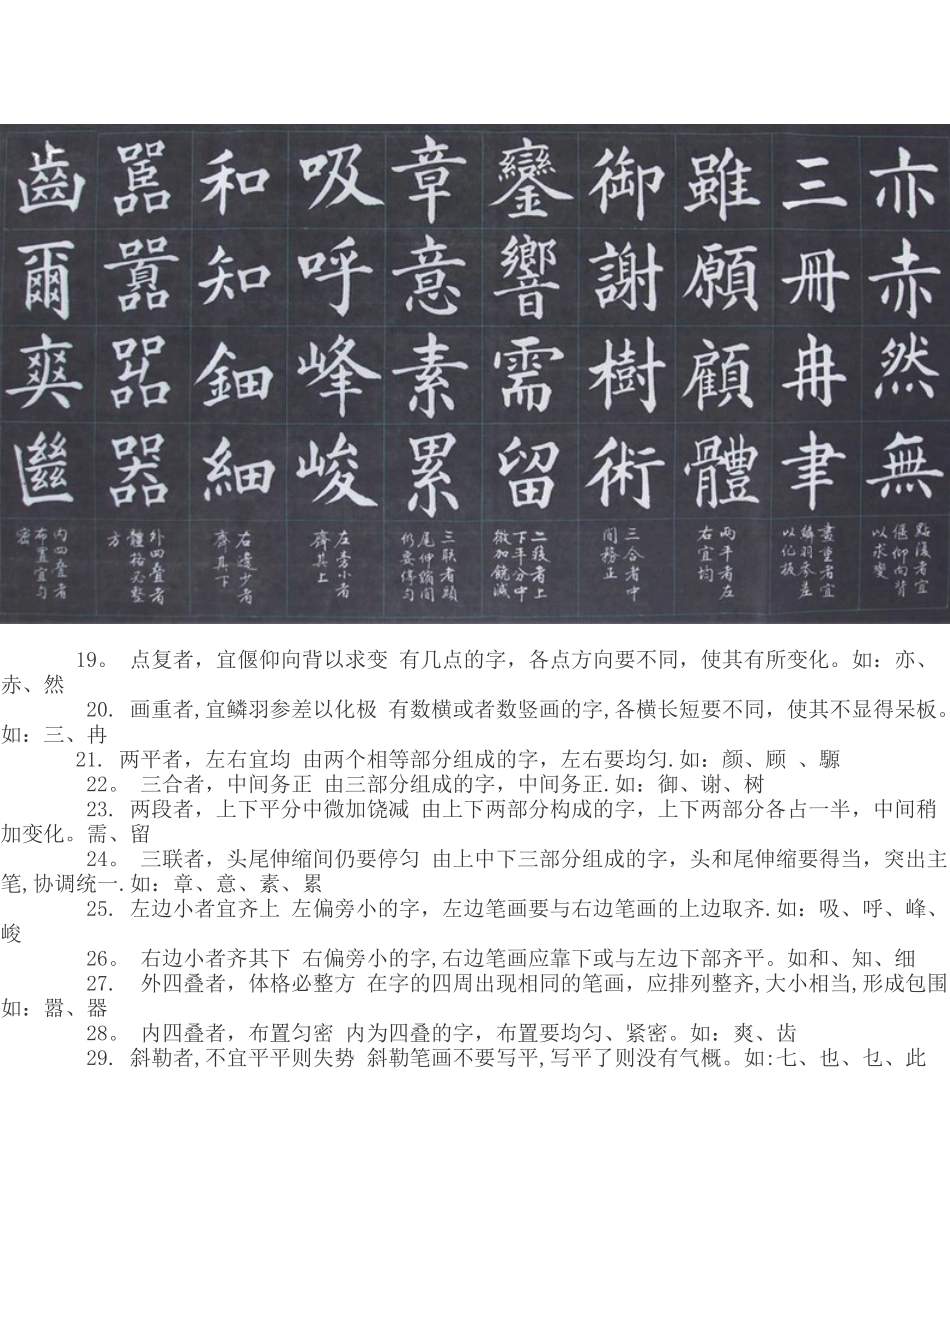 亦赤然無
點復者宜
偃仰向背
以求變
三冊冉聿
畫重者宜
鱗羽參差
以化板
雖願顧體
兩平者左
右宜均
御謝樹術
三合者中
間務正
鑾響需留
二段者上
下平分中
微加饒減
章意素累
三联者頭
尾伸縮間
仍要停勻
吸呼峰峻
左旁小者
齊其上
和知鈿細
右邊少者
齊其下
嚚囂嘂器
外四叠者
體格必整
方
齒爾爽
內四叠者
布置宜勻
密
19。 点复者，宜偃仰向背以求变 有几点的字，各点方向要不同，使其有所变化。如：亦、
赤、然
20. 画重者,宜鳞羽参差以化极 有数横或者数竖画的字,各横长短要不同，使其不显得呆板。
如：三、冉
21. 两平者，左右宜均 由两个相等部分组成的字，左右要均匀.如：颜、顾 、騵
22。 三合者，中间务正 由三部分组成的字，中间务正.如：御、谢、树
23. 两段者，上下平分中微加饶减 由上下两部分构成的字，上下两部分各占一半，中间稍
加变化。需、留
24。 三联者，头尾伸缩间仍要停匀 由上中下三部分组成的字，头和尾伸缩要得当，突出主
笔,协调统一.如：章、意、素、累
25. 左边小者宜齐上 左偏旁小的字，左边笔画要与右边笔画的上边取齐.如：吸、呼、峰、
峻
26。 右边小者齐其下 右偏旁小的字,右边笔画应靠下或与左边下部齐平。如和、知、细
27. 外四叠者，体格必整方 在字的四周出现相同的笔画，应排列整齐,大小相当,形成包围
如：嚣、器
28。 内四叠者，布置匀密 内为四叠的字，布置要均匀、紧密。如：爽、齿
29. 斜勒者,不宜平平则失势 斜勒笔画不要写平,写平了则没有气概。如:七、也、乜、此